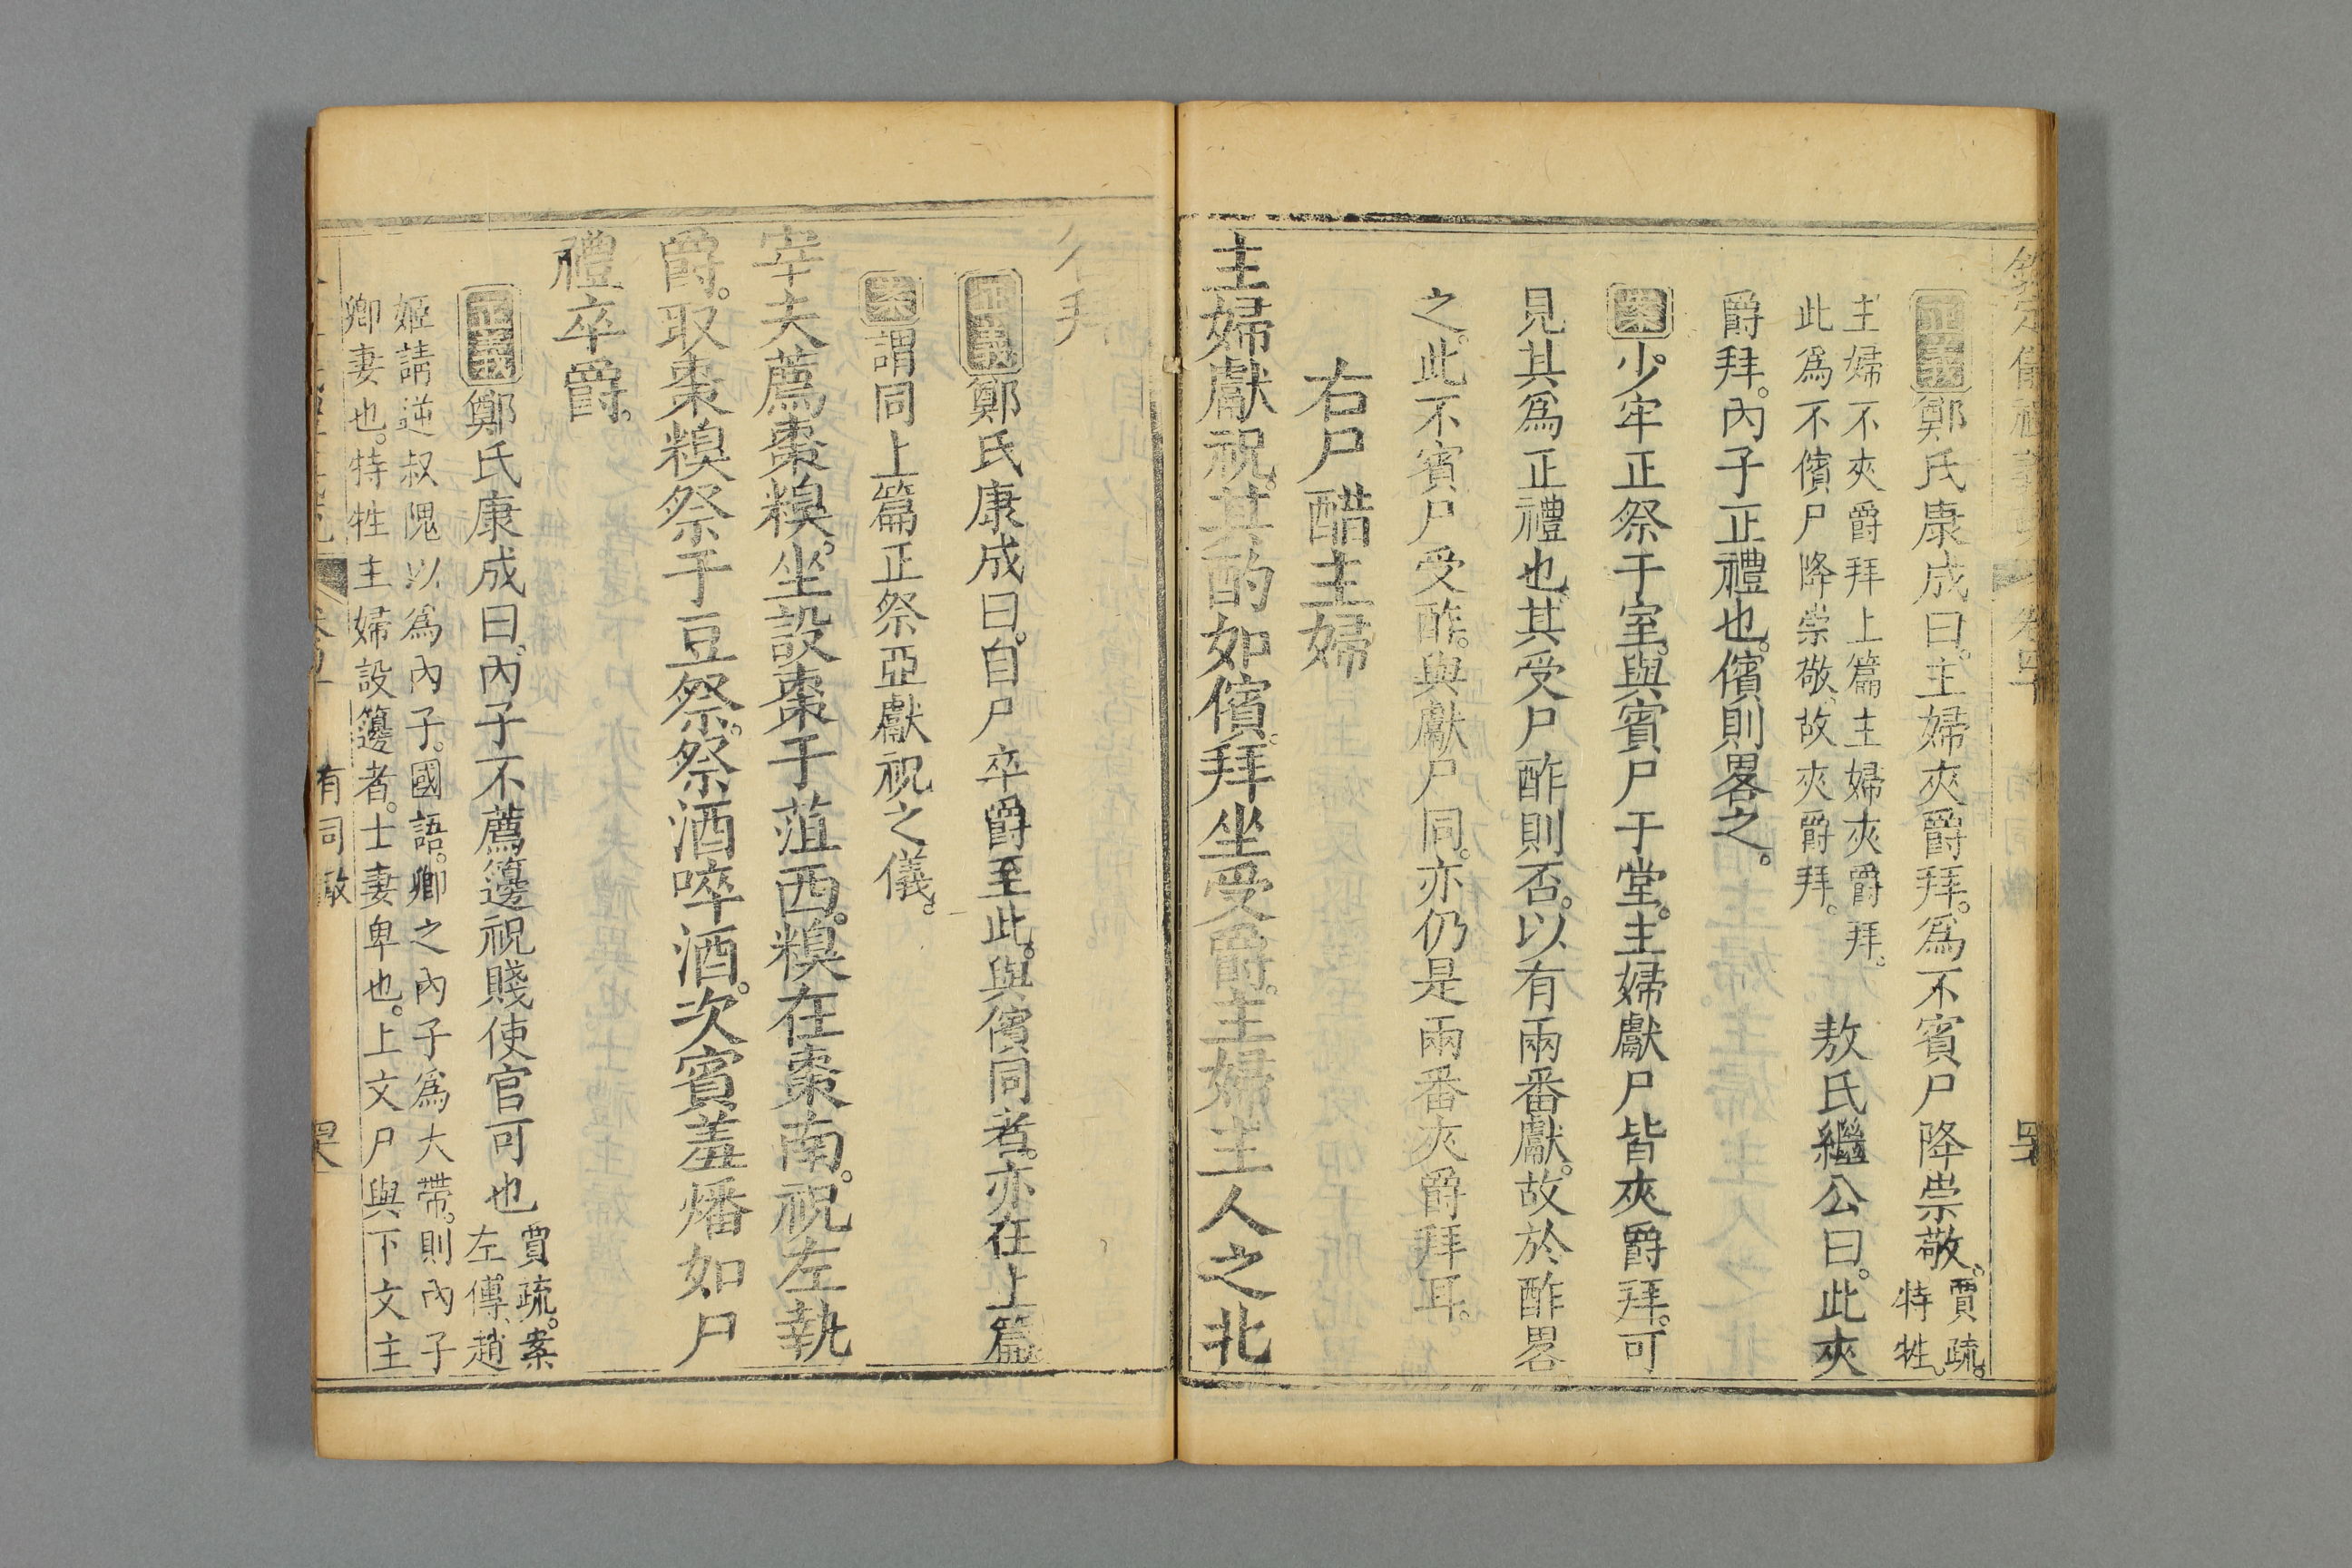 正義鄭氏康成曰。主婦夾爵拜。爲不賓尸降崇敬。賈疏。特牲、
主婦不夾爵拜上篇主婦夾爵拜。
此爲不儐尸降崇敬、故夾爵拜。
敖氏繼公曰。此夾
爵拜。內子正禮也。儐則畧之。
案少牢正祭于室。與賓尸于堂。主婦獻尸皆夾爵拜。可
見其爲正禮也。其受尸酢則否。以有兩番獻。故於酢畧
之。此不賓尸受酢。與獻尸同。亦仍是兩番夾爵拜耳。
右尸醋主婦
主婦獻祝。其酌如儐。拜坐受爵。主婦主人之北
拜
正義鄭氏康成曰。自尸卒爵至此。與儐同者。亦在上篇
案謂同上篇正祭亞獻祝之儀。
宰夫薦棗糗。坐設棗于菹西。糗在棗南。祝左執
爵。取棗糗祭于豆祭。祭酒啐酒。次賓羞燔如尸
禮卒爵。
正義鄭氏康成曰。內子不薦籩祝賤使官可也
賈疏。案
左傳、趙
姬請逆叔隗以爲內子。國語。卿之內子爲大帶。則內子
卿妻也。特牲主婦設籩者。士妻卑也。上文尸與下文主
有司徹